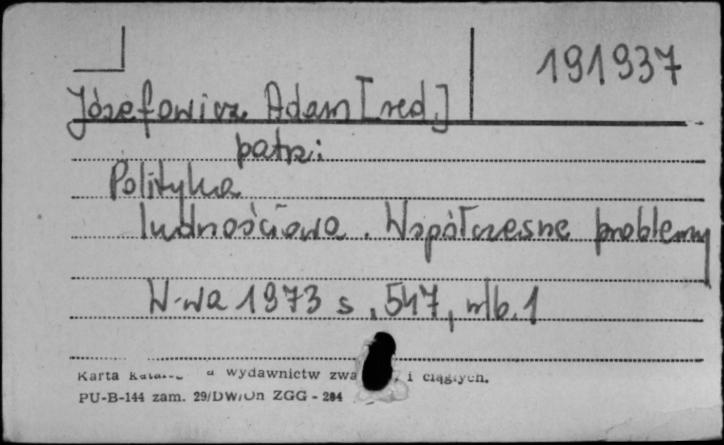 191937
Józefowicz Adam [red.]
patrz:
Polityka
ludnościowa. Współczesne problemy
W-wa 1973 s. 547, nlb. 1
Karta wydawnictw i ciągłych.
PU-B-144 zam. 29/DW/On ZGG - 284